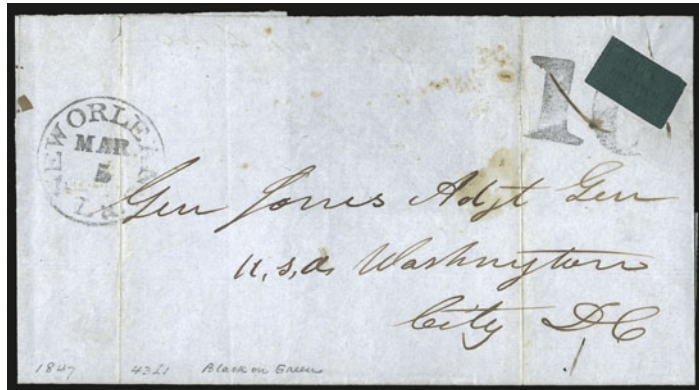 NEW ORLEANS
MAR
5
LA
10
Gen Jones Adjt Gen
U.S.A. Washington
City DC
1847 43L1 Black on Green